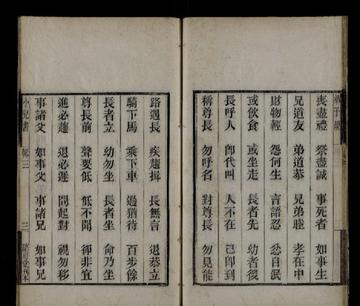 喪盡禮 祭盡誠 事死者 如事生
兄道友 弟道恭 兄弟睦 孝在中
財物輕 怨何生 言語忍 忿自泯
或飲食 或坐走 長者先 幼者後
長呼人 即代叫 人不在 己即到
稱尊長 勿呼名 對尊長 勿見能
路遇長 疾趨揖 長無言 退恭立
騎下馬 乘下車 過猶待 百步餘
長者立 幼勿坐 長者坐 命乃坐
尊長前 聲要低 低不聞 卻非宜
進必趨 退必遲 問起對 視勿移
事諸父 如事父 事諸兄 如事兄